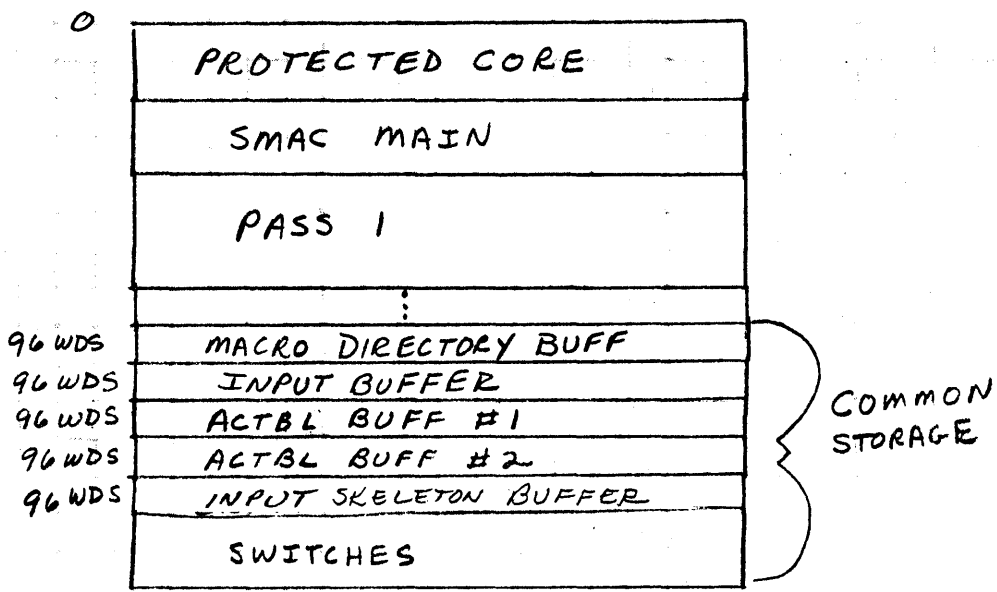 0
PROTECTED CORE
SMAC MAIN
PASS 1
96 WDS MACRO DIRECTORY BUFF
96 WDS INPUT BUFFER
96 WDS ACTBL BUFF #1
96 WDS ACTBL BUFF #2
96 WDS INPUT SKELETON BUFFER
SWITCHES
COMMON
STORAGE